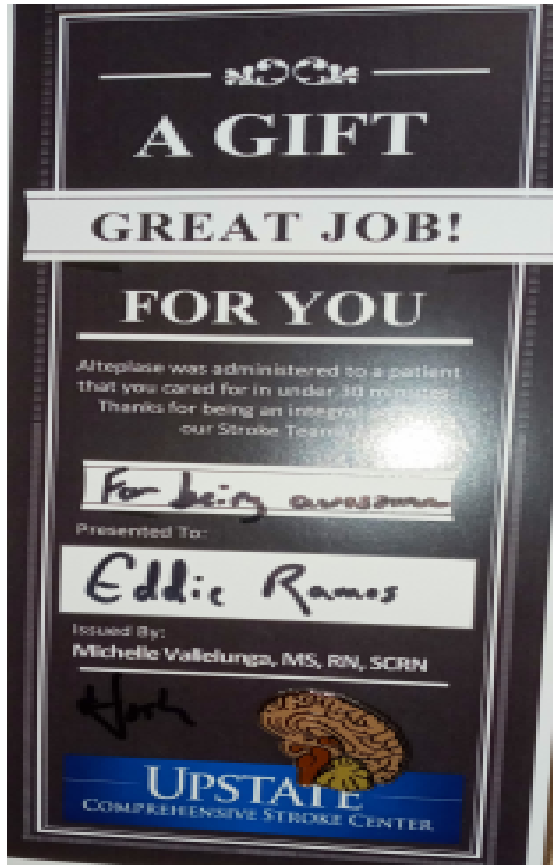 A GIFT
GREAT JOB!
FOR YOU
Alteplase was administered to a patient
that you cared for in under 30 minutes.
Thanks for being an integral
our Stroke Team
For being awesome
Presented To:
Eddie Ramos
Issued By:
Michelle Vallelunga, MS, RN, SCRN
UPSTATE
COMPREHENSIVE STROKE CENTER